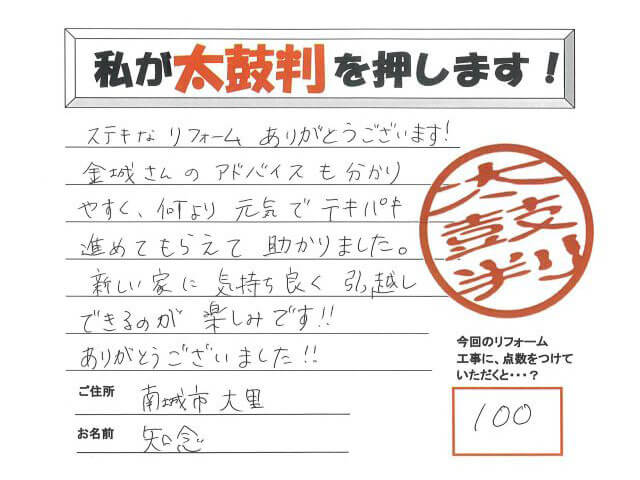 私が太鼓判を押します！
ステキな リフォーム ありがとうございます!
金城さんの アドバイスも分かり
やすく、何より 元気で テキパキ
進めてもらえて 助かりました。
新しい家に 気持ち良く 引っ越し
できるのが 楽しみです!!
ありがとうございました!!
太鼓判
今回のリフォーム
工事に、点数をつけて
いただくと・・・？
100
ご住所 南城市 大里
お名前 知念